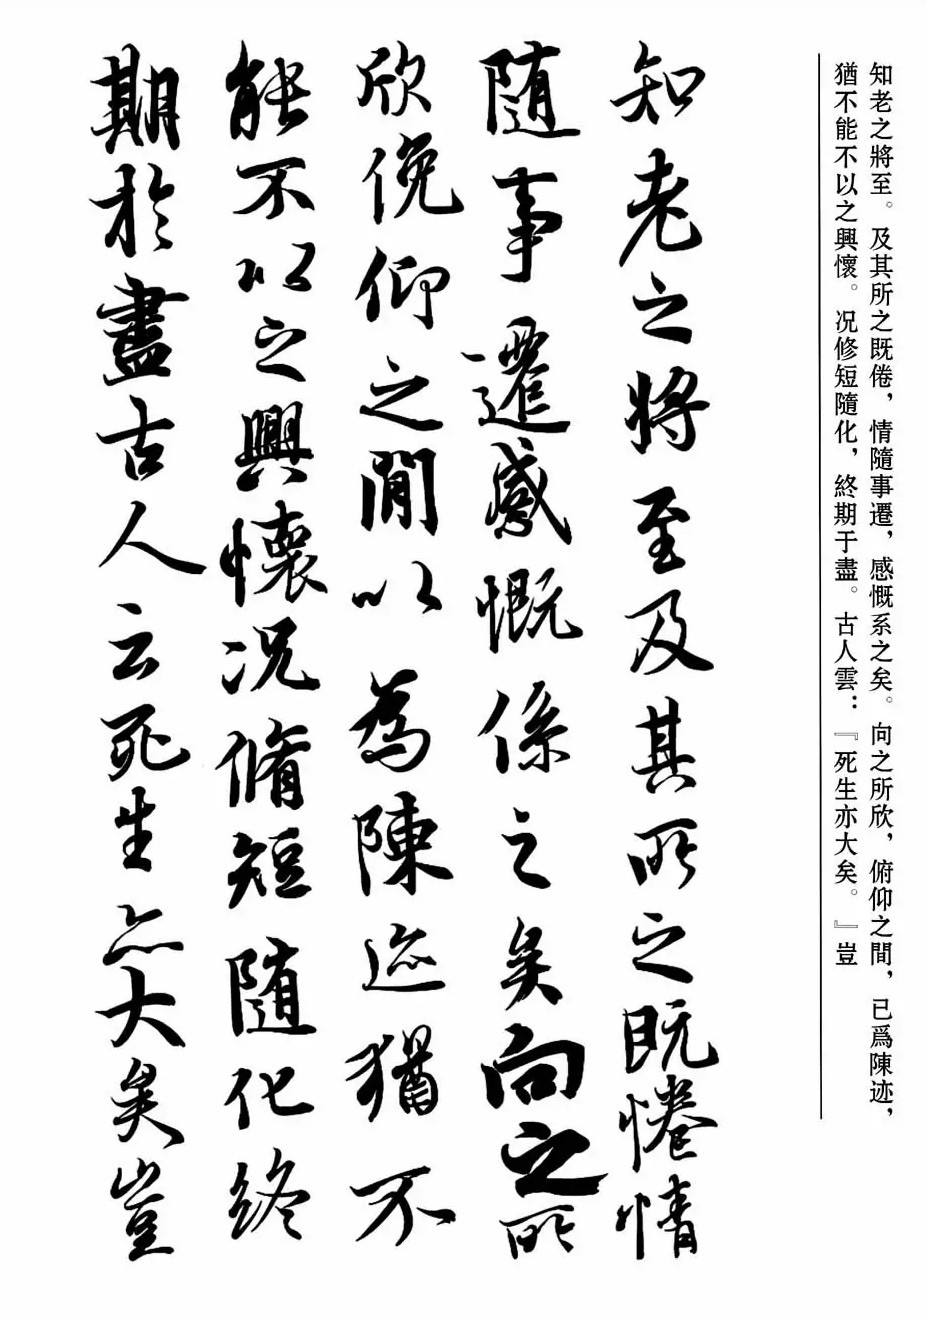 知老之將至。及其所之既倦，情隨事遷，感慨系之矣。向之所欣，俯仰之間，已爲陳迹，
猶不能不以之興懷。况修短隨化，終期于盡。古人雲：『死生亦大矣。』豈
知老之将至及其所之既惓情
隨事遷感慨係之矣向之所
欣俛仰之間以為陳迹猶不
能不以之興懷况脩短隨化終
期於盡古人云死生亦大矣豈